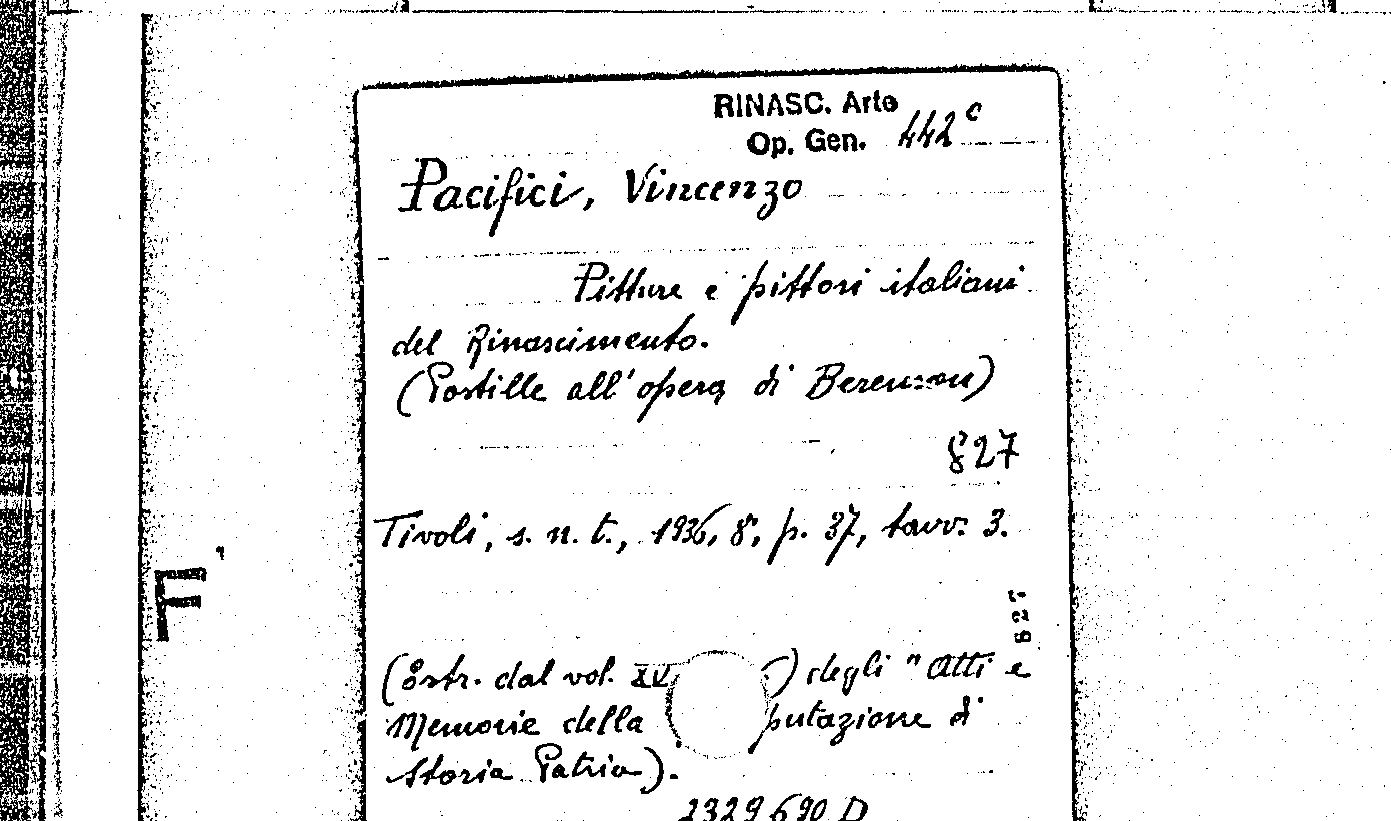 RINASC. Arte
Op. Gen. 442 c
Pacifici, Vincenzo
Pitture e pittori italiani
del Rinascimento.
(Postille all'opera di Berenson)
827
Tivoli, s. n. t., 1936, 8°, p. 37, tavv. 3.
F
827
(Estr. dal vol. XV ) degli "Atti e
Memorie della putazione di
Storia Patria).
2329690 D